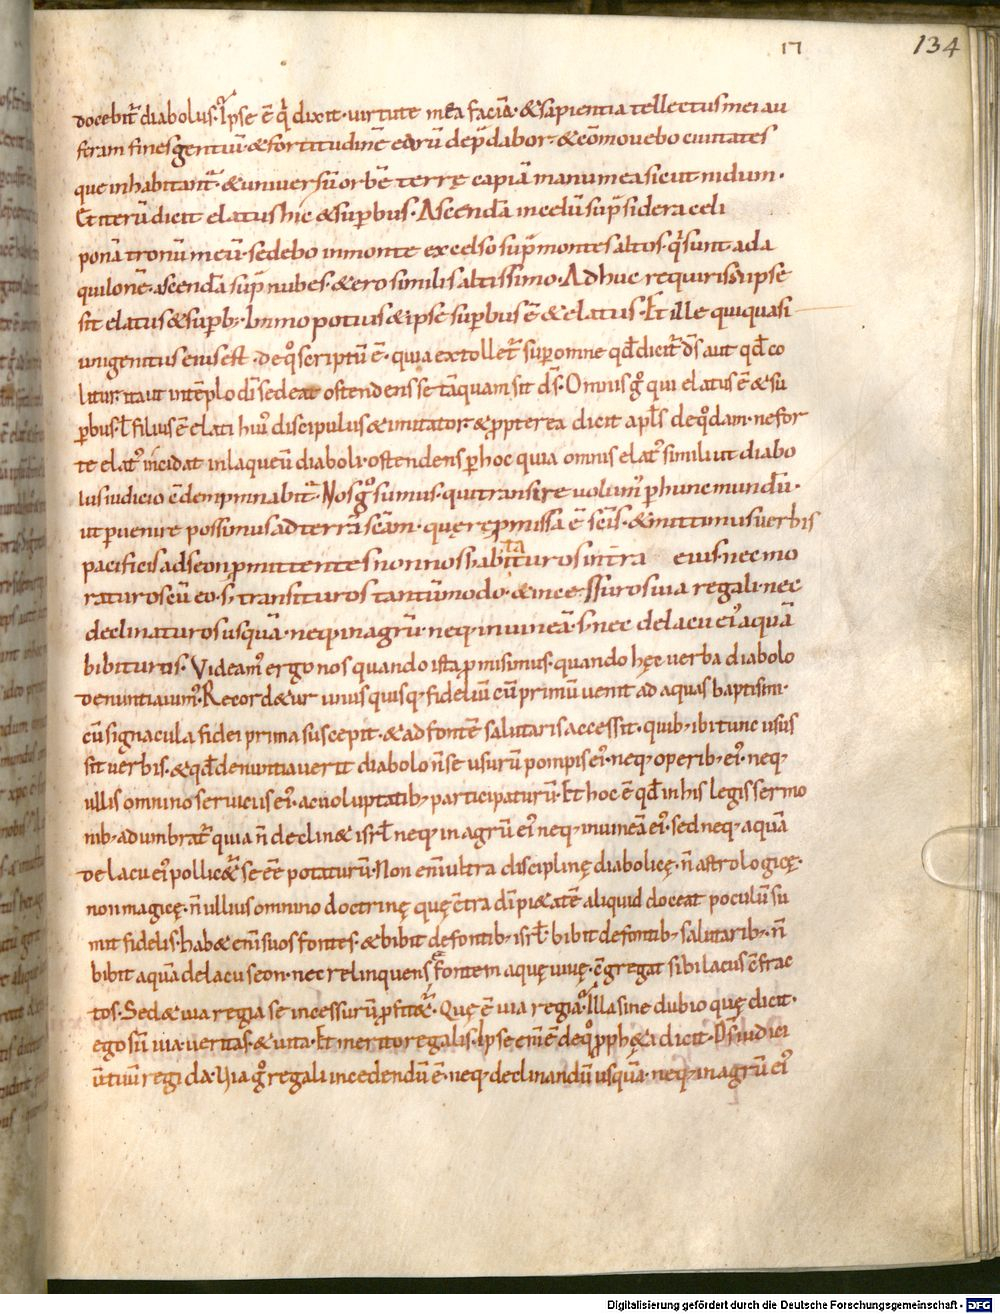 17
134
docebit᷒ diabolus. Ipse ē q̇ dixit. virtute mea faciā. & sapientia tellectus mei au
feram fines gentiū. & fortitudinē eorū dep̄dabor. & cōmovebo civitates
que inhabitant᷒. & universū orbē terrę capiā manu mea sicut nidum.
Et iterū dicit elatus hic & sup̱bus. Ascendā in celū sup̄ sidera celi
ponā tronū meū. sedebo in monte excelso sup̄ montes altos. q̇ sunt ad a
quilonē. ascendā sup̄ nubes. & ero similis altissimo. Adhuc requiris si ipse
sit elatus & sup̱b; Immo potius & ipse sup̱bus ē & elatus. Et ille qui quasi
unigenitus eius est. de qͦ scriptū ē. quia extollet᷒ super omne qđ dicit᷒ d̄s aut qđ co
litur. ita ut in tēplo dī sedeat ostendens se tāquam sit d̄s. Omnis gͦ qui elatus ē & su
p̱bus. ł filius ē elati hui᷒ discipulus & imitator & ꝓpterea dicit apłs de qͦdam. ne for
te elat᷒ incidat in laqueū diaboli. ostendens p̱ hoc quia omnis elat᷒ similiter ut diabo
lus iudicio cōdempmnabit᷒. Nos gͦ sumus. qui transire volum᷒ p̱ hunc mundū.
ut p̱venire possimus ad terrā sc̄am. quę rep̄missa ē sc̄is. & mittimus verbis
pacificis ad seon ꝓmittentes non nos habitaturos in t̄ra eius. nec mo
raturos cū eo. s; transituros tantūmodo. & incessuros via regali. nec
declinaturos usquā. neq; in agrū. neq; in vineā. s; nec de lacu ei᷒ aquā
bibituros. Videam᷒ ergo nos quando ista ꝓmisimus. quando hęc verba diabolo
denuntiavim᷒. Record&ur unusquisq; fideliū cū primū venit ad aquas baptismi.
cū signacula fidei prima suscepit. & ad fontē salutaris accessit. quib; ibi tunc usus
sit verbis. & qđ denuntiaverit diabolo n̄ se usurū pompis ei᷒. neq; operib; ei᷒. neq;
ullis omnino serviciis ei᷒. ac voluptatib; participaturū. Et hoc ē qđ in his legis sermo
nib; adumbrat᷒ quia n̄ declin& isrł neq; in agrū ei᷒ neq; in vineā ei᷒. sed neq; aquā
de lacu ei᷒ pollic&᷒ se eē potaturū. Non enī ultra disciplinę diabolicę. n̄ astrologicę.
non magicę. n̄ ullius omnino doctrinę quę c̄tra dī pi&atē aliquid doceat poculū su
mit fidelis. hab& enī suos fontes. & bibit de fontib; isrł. bibit de fontib; salutarib;. n̄
bibit aquā de lacu seon. nec relinquens fontem aquę vivę. c̄gregat sibi lacus c̄frac
tos. Sed & via regia se incessurū ꝓfit&᷒. Quę ē via regia. Illa sine dubio quę dicit.
ego sū via. veritas. & vita. Et merito regalis. Ipse enī ē de qͦ ꝓph&a dicit. D̄s iudiciū
tuū regi da. Via gͦ regali incedendū ē. neq; declinandū usquā. neq; in agrū ei᷒
Digitalisierung gefördert durch die Deutsche Forschungsgemeinschaft - DFG